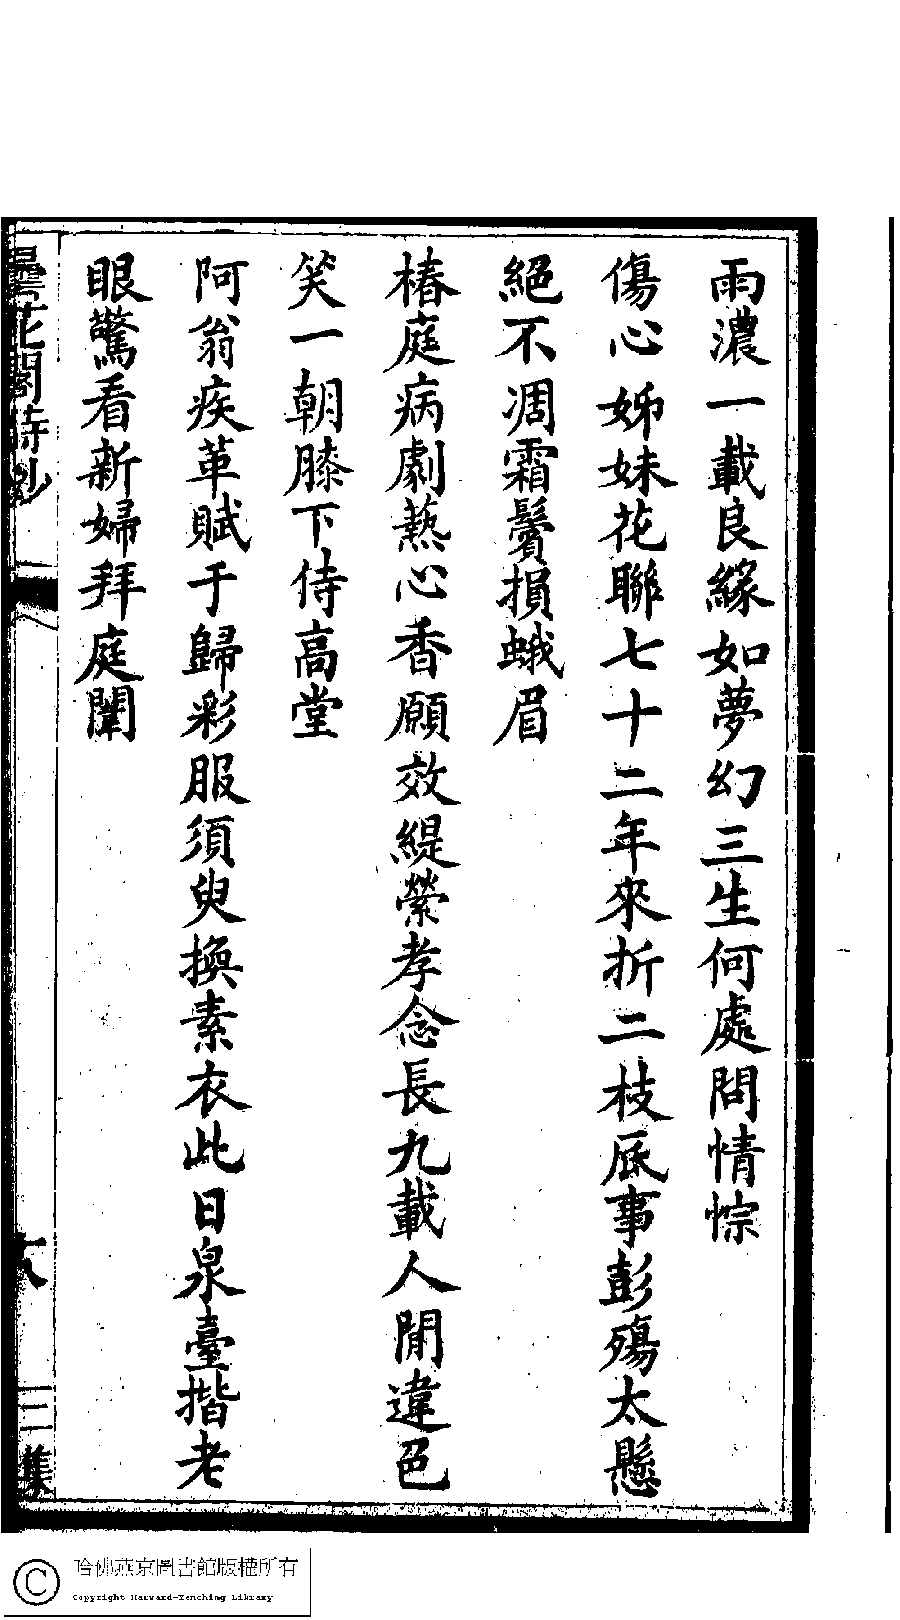 雨濃一載良緣如夢幻三生何處問情悰
傷心姊妹花聯七十二年來折二枝底事彭殤太懸
絕不凋霜鬢損蛾眉
椿庭病劇爇心香願效緹縈孝念長九載人閒違色
笑一朝膝下侍高堂
阿翁疾革賦于歸彩服須臾換素衣此日泉臺揩老
眼驚看新婦拜庭闈
曇花閣詩鈔
六
三集
哈佛燕京圖書館版權所有
Copyright Harvard-Yenching Library